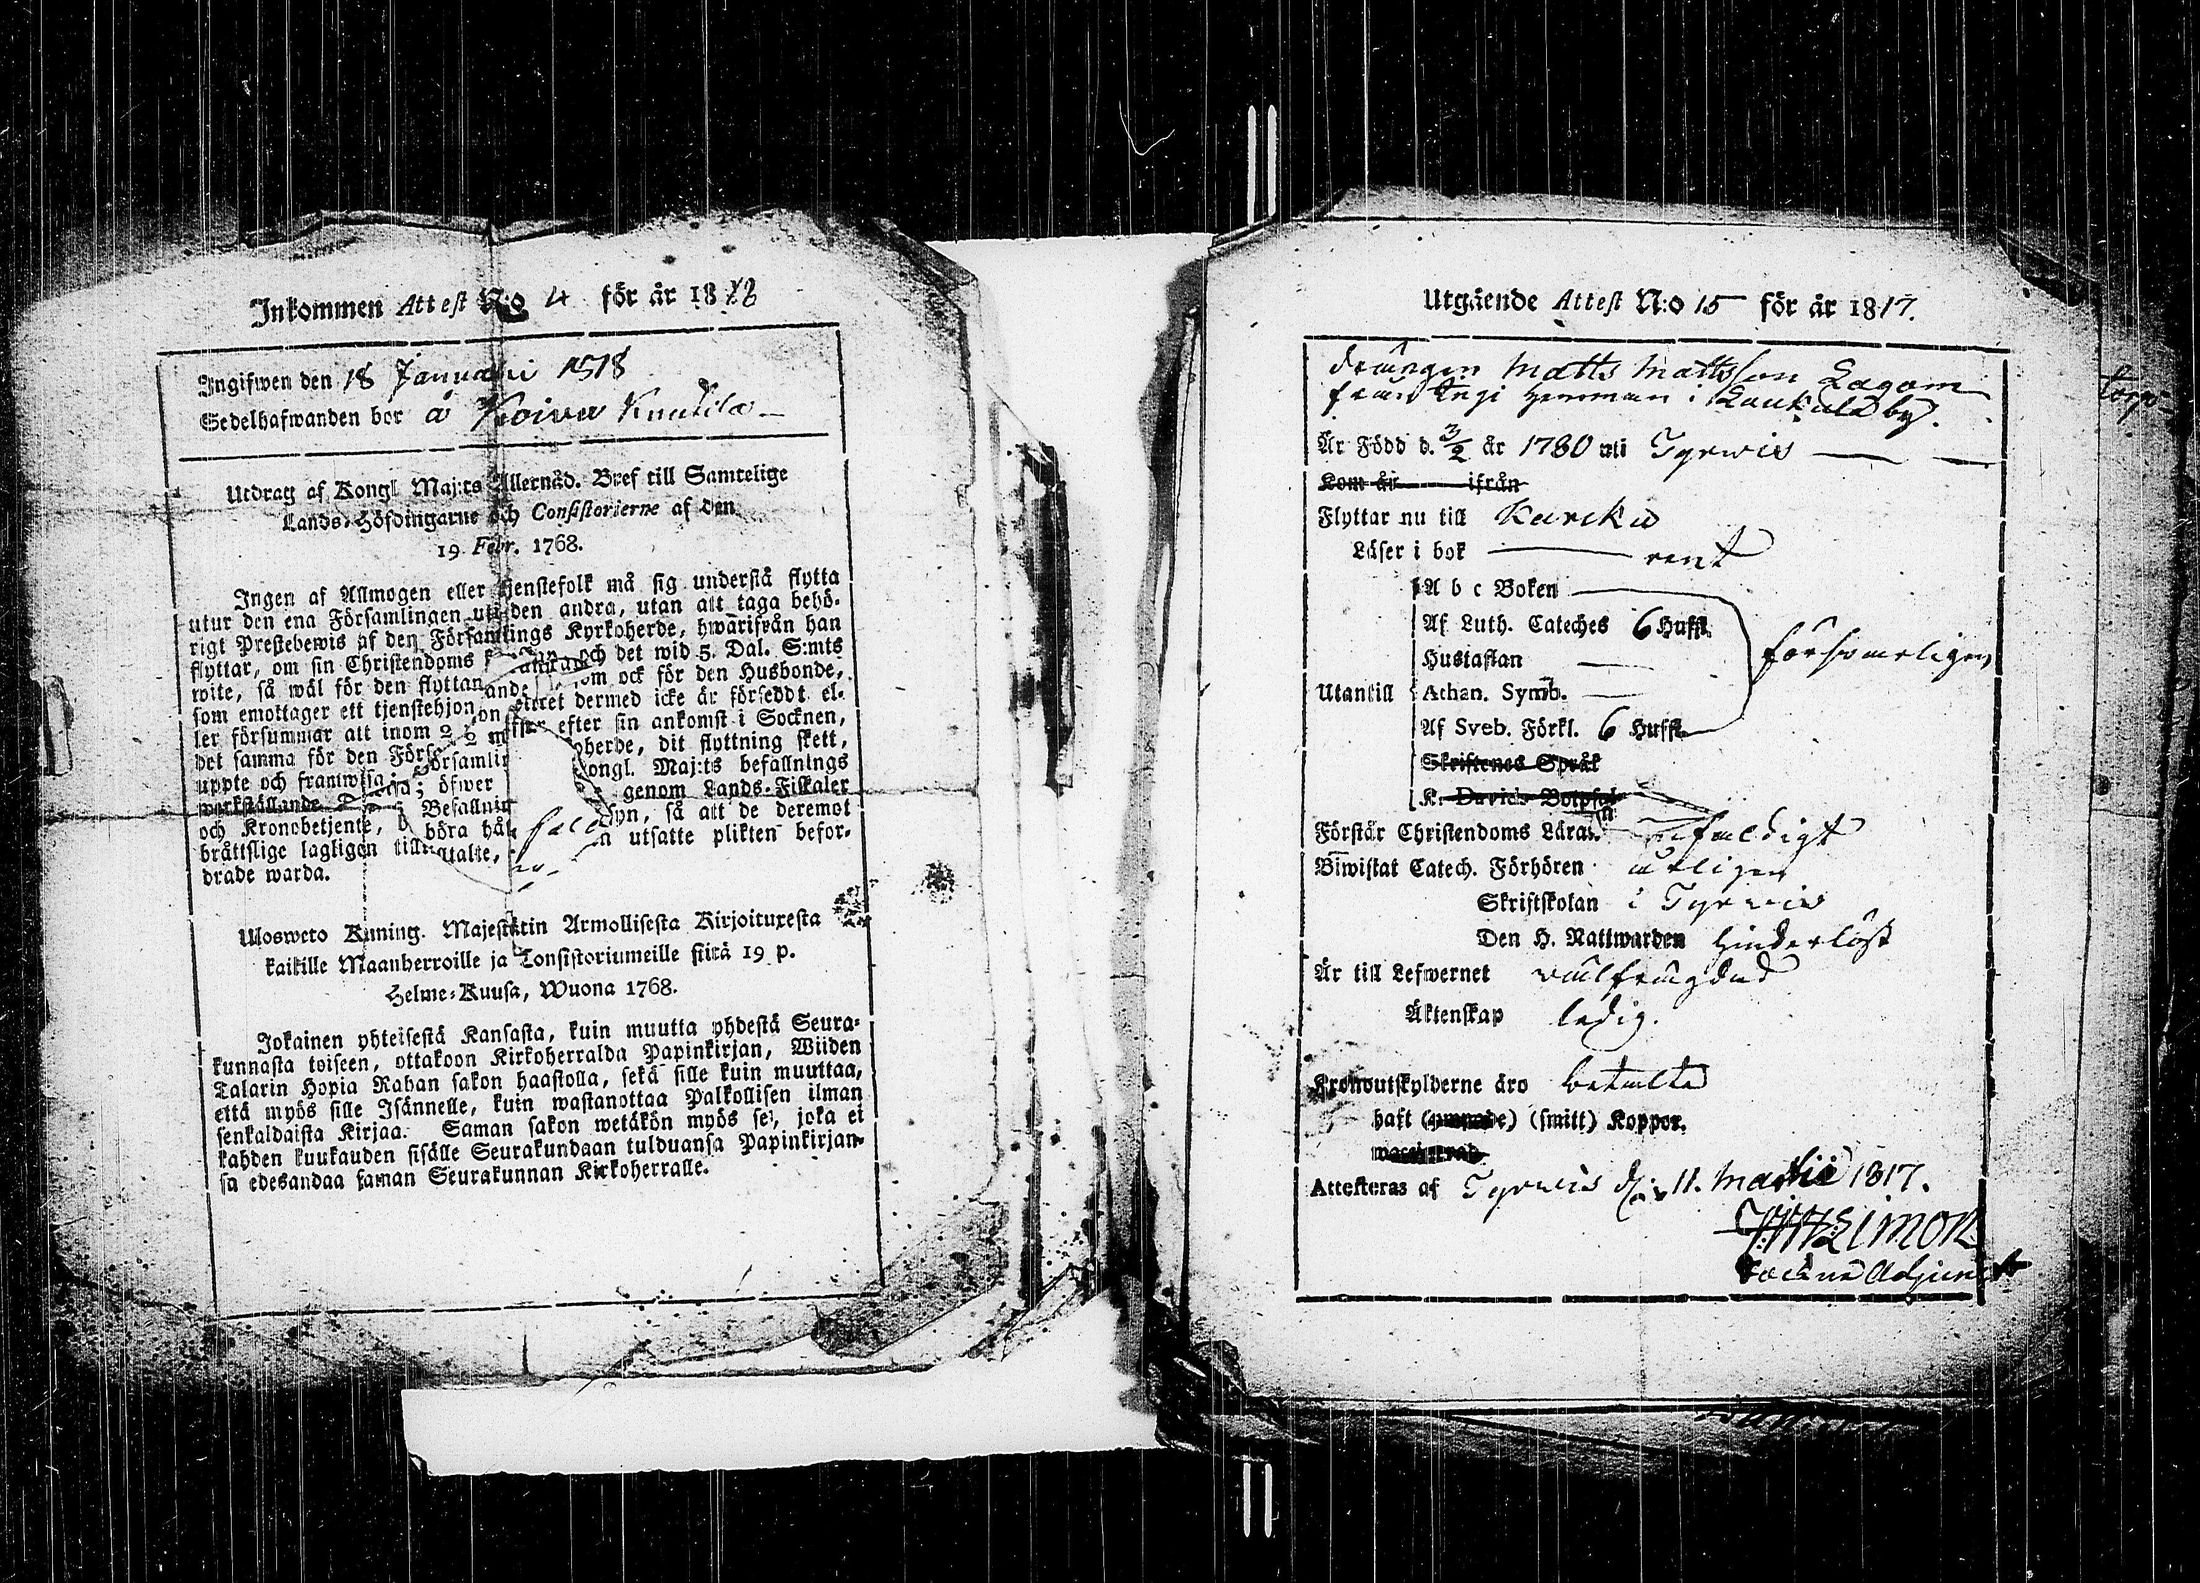 Inkommen Attest N:o 4 för år 1818
Ingifwen den 18 Januarii 1818
Sedelhafwanden bor å Koivu Knuutila
Utdrag af Kongl Maj:ts Allernåd. Bref till Samtelige
Lands-Höfdingarne och Consistorierne af den
19 Febr. 1768.
Ingen af Allmogen eller tjenstefolk må sig understå flytta
utur den ena Församlingen uti den andra, utan att taga behö-
rigt Prestebewis af den Församlings Kyrkoherde, hwarifrån han
flyttar, om sin Christendoms och det wid 5. Dal. S:mts
wite, så wäl för den flyttande som ock för den Husbonde,
som emottager ett tjenstehjon dermed icke är försedt el-
ler försummar att inom 2 efter sin ankomst i Socknen,
det samma för den dit flyttning skett,
uppte och framwisa; öfwer Kongl. Maj:ts befallnings
werkställande genom Lands-Fiskaler
och Kronobetjente, böra så att de deremot
bråttslige lagligen utsatte plikten befor-
drade warda.
Ulosweto Kuning. Majestätin Armollisesta Kirjoituxesta
kaikille Maanherroille ja Consistoriumeille siitä 19 p.
Helme-Kuusa, Wuona 1768.
Jokainen yhteisestä Kansasta, kuin muutta yhdestä Seura-
kunnasta toiseen, ottakoon Kirkoherralda Papinkirjan, Wiiden
Talarin Hopia Rahan sakon haastolla, sekä sille kuin muuttaa,
että myös sille Isännelle, kuin wastanottaa Palkollisen ilman
senkaldaista Kirjaa. Saman sakon wetäkön myös se, joka ei
kahden kuukauden sisälle Seurakundaan tulduansa Papinkirjan-
sa edesandaa saman Seurakunnan Kirkoherralle.
Utgående Attest N:o 15 för år 1817.
drängen Matts Mattsson Lagom
från Knji hemman i Kaukola by.
Är Född d. 3/2 år 1780 uti Tyrwis
Kom år ifrån
Flyttar nu till Karcku
Läser i bok rent
A b c Boken
Af Luth. Cateches 6 Hufst.
Hustaflan
försvarligen
Utantill Athan. Symb.
Af Sveb. Förkl. 6 Hufst.
Skriftenes Språk
K. Davids Botpsal
Förstår Christendoms Läran enfaldigt
Biwistat Catech. Förhören årligen
Skriftskolan i Tyrwis
Den H. Nattwarden hinderlöst
Är till Lefwernet wälfrägdad
Äktenskap ledig.
Kronoutskylderne äro betalte
haft (ympade) (smitt) Koppor.
Attesteras af Tyrwis d. 11. Martii 1817.
Sockne Adjunct